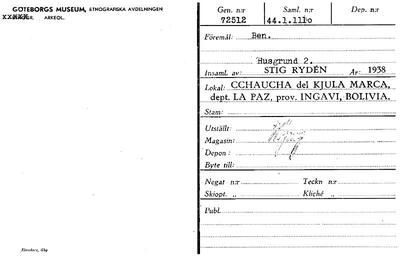 GÖTEBORGS MUSEUM, ETNOGRAFISKA AVDELNINGEN
ARKEOL.
Gen. n:r Saml. n:r Dep. n:r
72512 44.1.111o
Föremål: Ben.
Husgrund 2.
Insaml. av: STIG RYDÉN År: 1938
Lokal: CCHAUCHA del KJULA MARCA,
dept. LA PAZ, prov. INGAVI, BOLIVIA.
Stam:
Utställt:
Magasin:
Depon:
Byte till:
Negat n:r Teckn n:r
Skiopt. „ Kliché „
Publ.